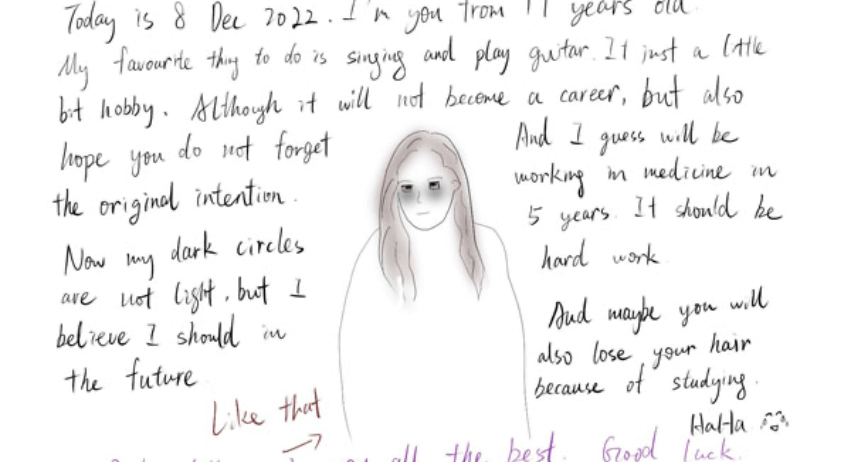 Today is 8 Dec 2022. I'm you from 17 years old.
My favourite thing to do is singing and play guitar. It just a little
bit hobby. Although it will not become a career, but also
hope you do not forget
the original intention.
Now my dark circles
are not light, but I
believe I should in
the future
Like that
And I guess will be
working in medicine in
5 years. It should be
hard work
And maybe you will
also lose your hair
because of studying.
HaHa
all the best. Good luck.